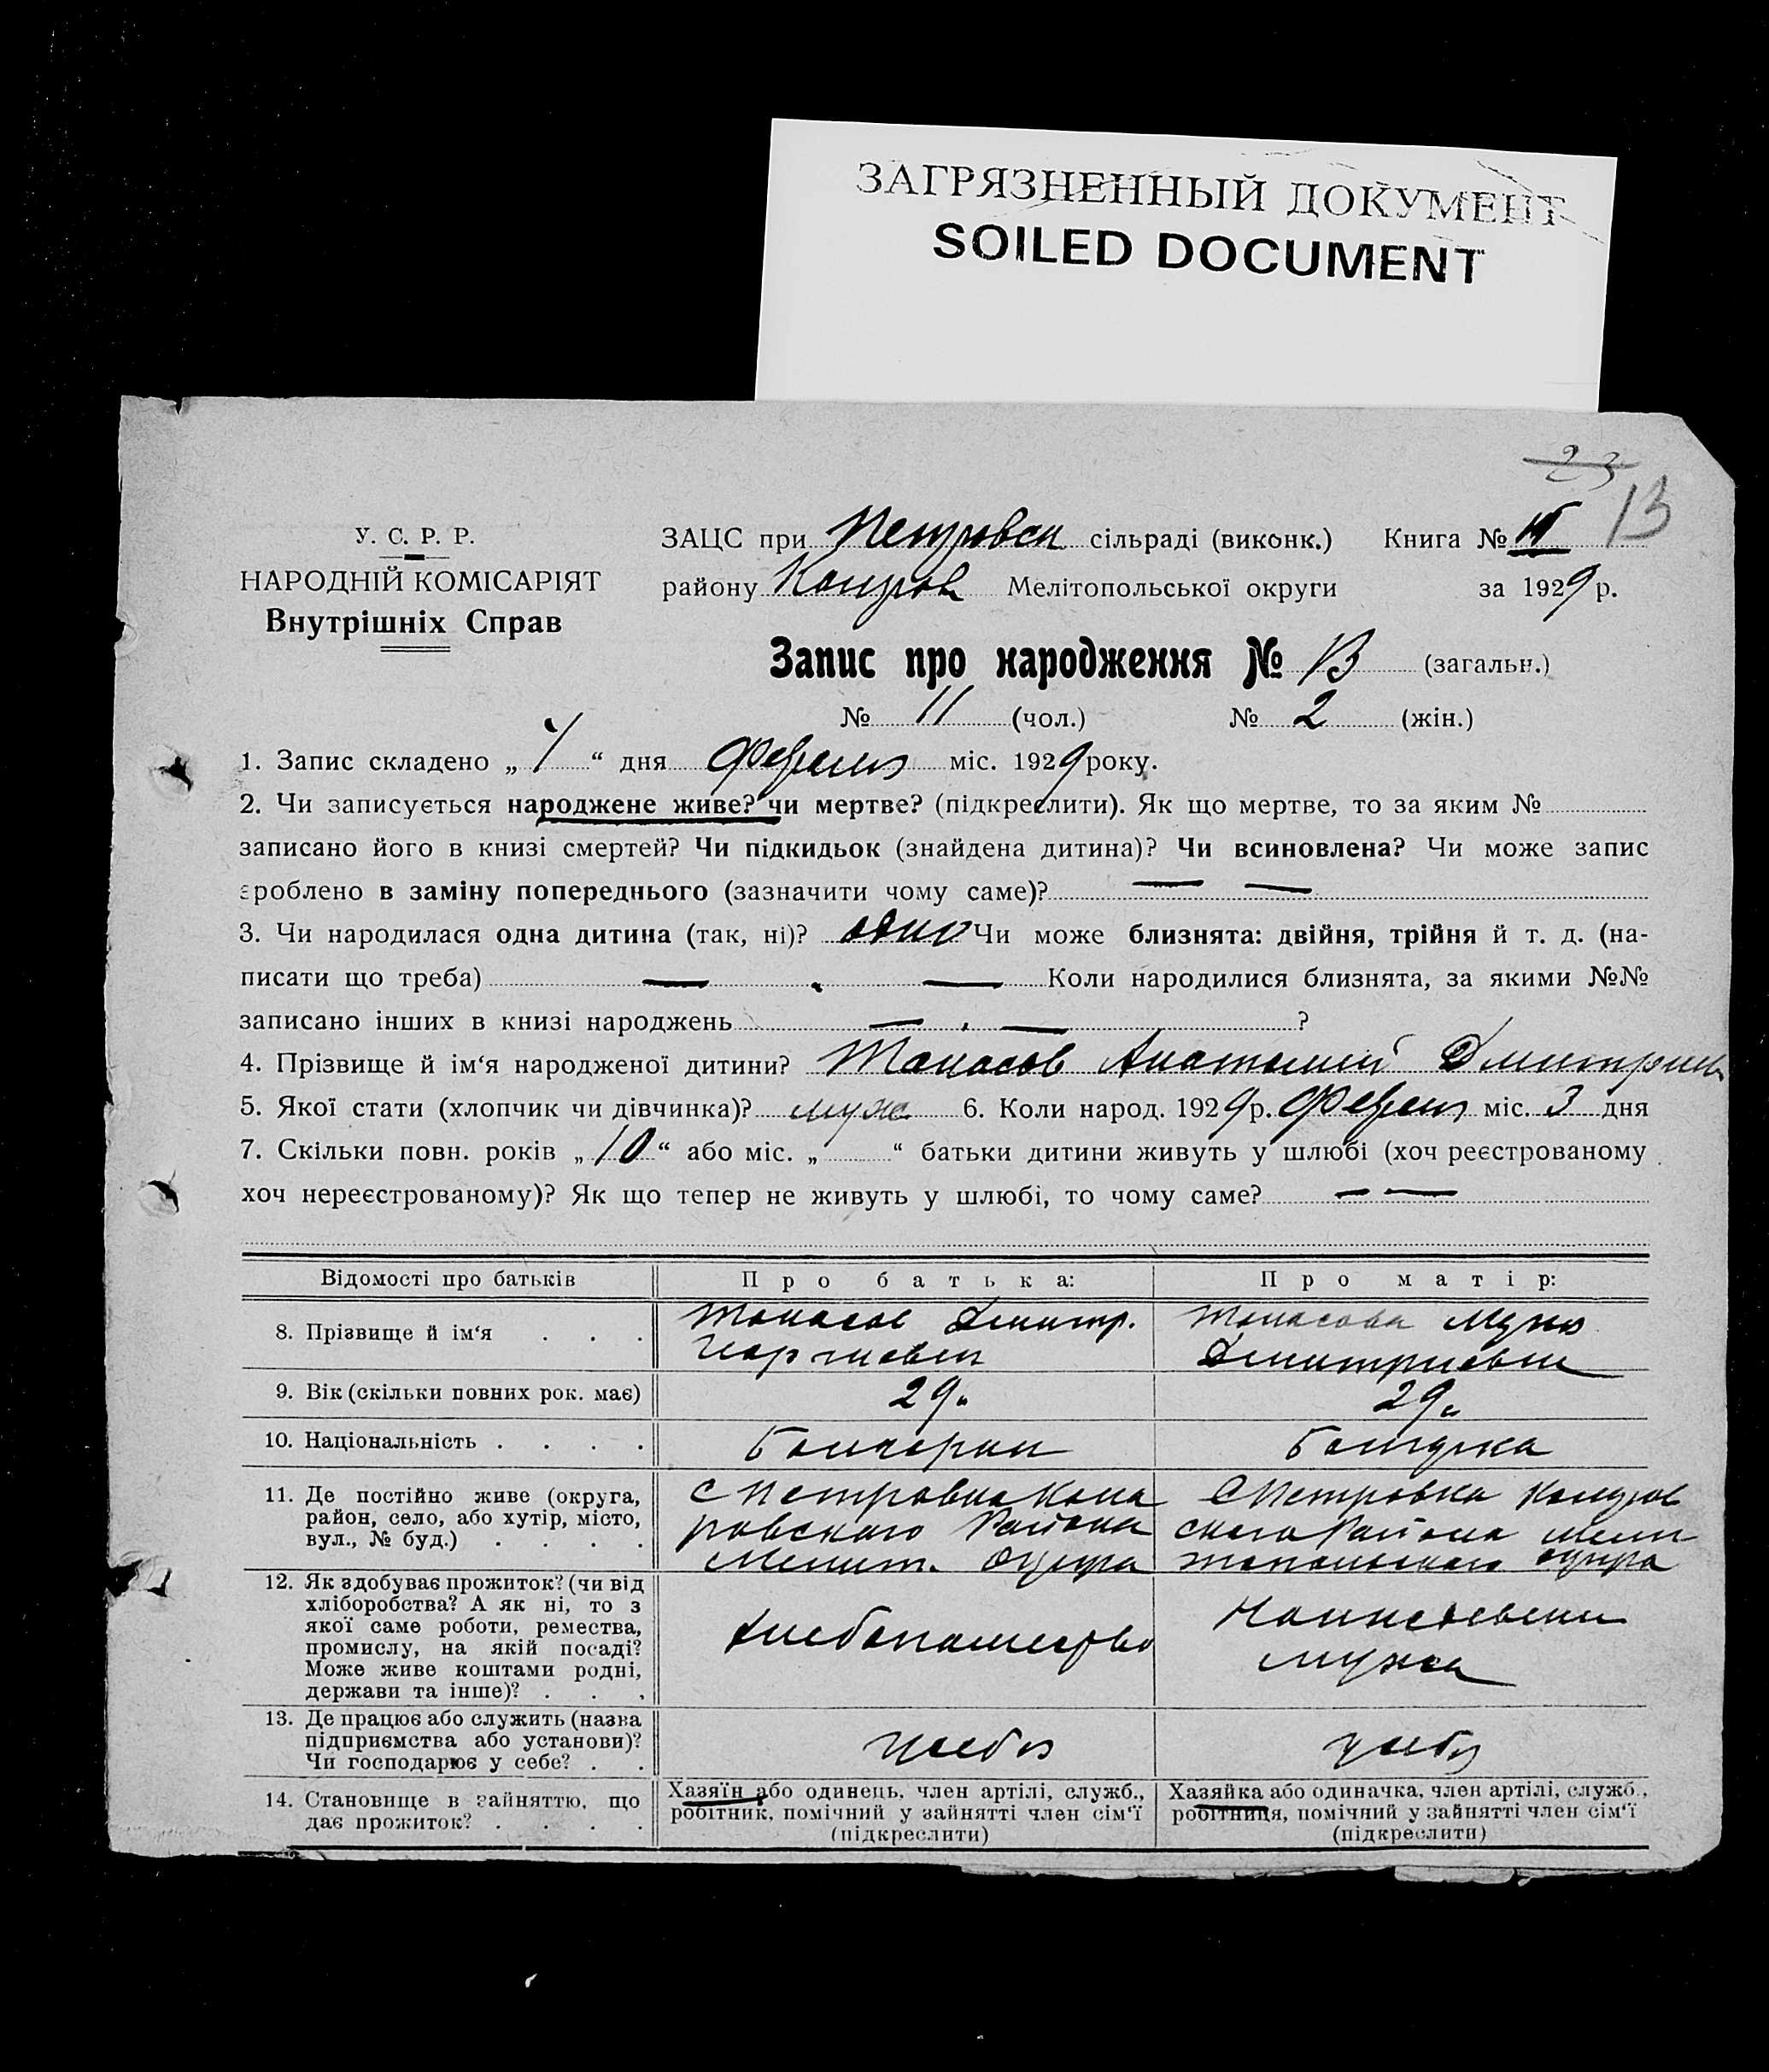 ЗАГРЯЗНЕННЫЙ ДОКУМЕНТ
SOILED DOCUMENT
23
13
У. С. Р. Р.
НАРОДНІЙ КОМІСАРІЯТ
Внутрішніх Справ
ЗАЦС при Петровск сільраді (виконк.) Книга №
району Мелітопольської округи за 1929 р.
Запис про народження № 13 (загальн.)
№ 11 (чол.) № 2 (жін.)
1. Запис складено „ “ дня Февраля міс. 1929 року.
2. Чи записується народжене живе? чи мертве? (підкреслити). Як що мертве, то за яким №
записано його в книзі смертей? Чи підкидьок (знайдена дитина)? Чи всиновлена? Чи може запис
зроблено в заміну попереднього (зазначити чому саме)? — —
3. Чи народилася одна дитина (так, ні)? одно Чи може близнята: двійня, трійня й т. д. (на-
писати що треба) — — Коли народилися близнята, за якими №№
записано інших в книзі народжень — — ?
4. Прізвище й ім‘я народженої дитини? Танасов Анатолий Дмитриев
5. Якої стати (хлопчик чи дівчинка)? муж 6. Коли народ. 1929 р. Февраля міс. 3 дня
7. Скільки повн. років „ 10 “ або міс. „ “ батьки дитини живуть у шлюбі (хоч реєстрованому
хоч нереєстрованому)? Як що тепер не живуть у шлюбі, то чому саме? — —
Відомості про батьків
Про батька:
Про матір:
8. Прізвище й ім‘я . . .
Танасов Дмитр.
Георгиевич
Танасова
Дмитриевна
9. Вік (скільки повних рок. має)
29
29
10. Національність . . . .
Болгарин
Болгарка
11. Де постійно живе (округа,
район, село, або хутір, місто,
вул., № буд.) . . . .
С Петровка
ровского Района
Мелит. Округа
С Петровка
ского Района Мели
топольского округа
12. Як здобуває прожиток? (чи від
хліборобства? А як ні, то з
якої саме роботи, ремества,
промислу, на якій посаді?
Може живе коштами родні,
держави та інше)? . . .
Хлебопашество
На иждевении
мужа
13. Де працює або служить (назва
підприємства або установи)?
Чи господарює у себе? . .
у себя
у себя
14. Становище в зайняттю, що
дає прожиток? . . . .
Хазяїн або одинець, член артілі, служб.,
робітник, помічний у зайнятті член сім‘ї
(підкреслити)
Хазяйка або одиначка, член артілі, служб.,
робітниця, помічний у зайнятті член сім‘ї
(підкреслити)